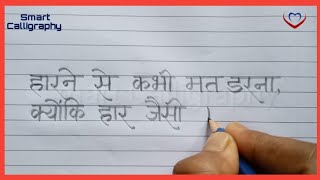 Smart
Calligraphy
हारने से कभी मत डरना,
क्योंकि हार जैसी